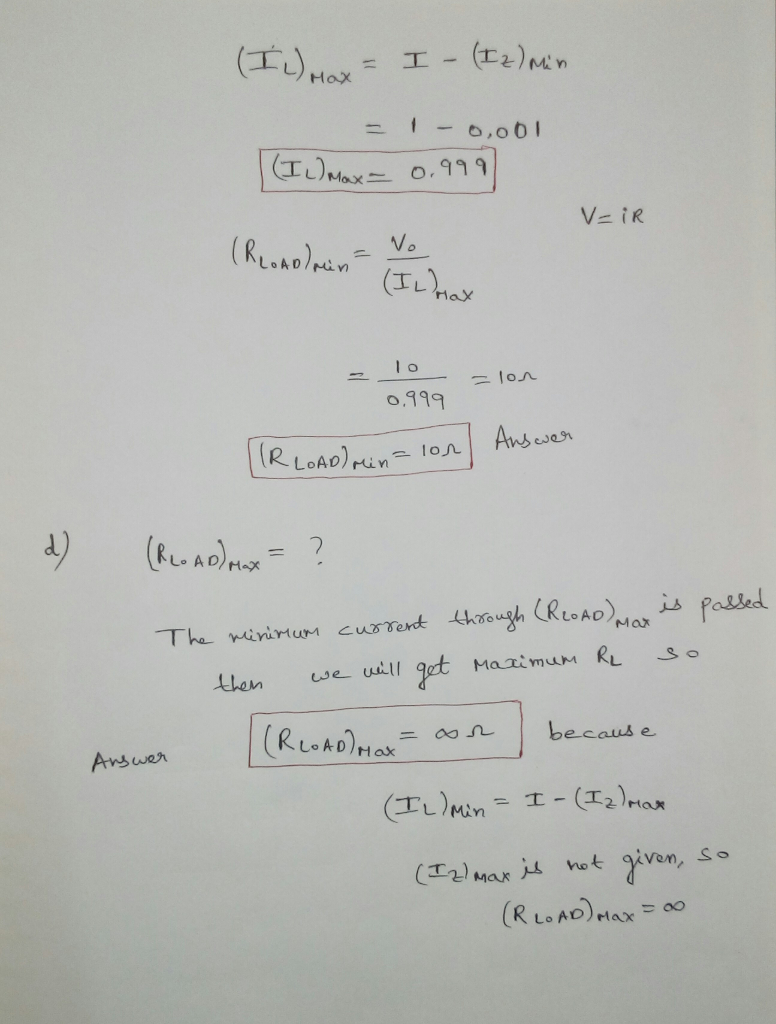 (IL)Max = I - (Iz)Min
= 1 - 0.001
(IL)Max = 0.999
V = iR
(RLOAD)Min = Vo / (IL)Max
= 10 / 0.999 = 10Ω
(RLOAD)Min = 10Ω Answer
d) (RLOAD)Max = ?
The minimum current through (RLOAD)Max is passed
then we will get Maximum RL so
Answer (RLOAD)Max = ∞ Ω because
(IL)Min = I - (Iz)Max
(Iz)Max is not given, so
(RLOAD)Max = ∞